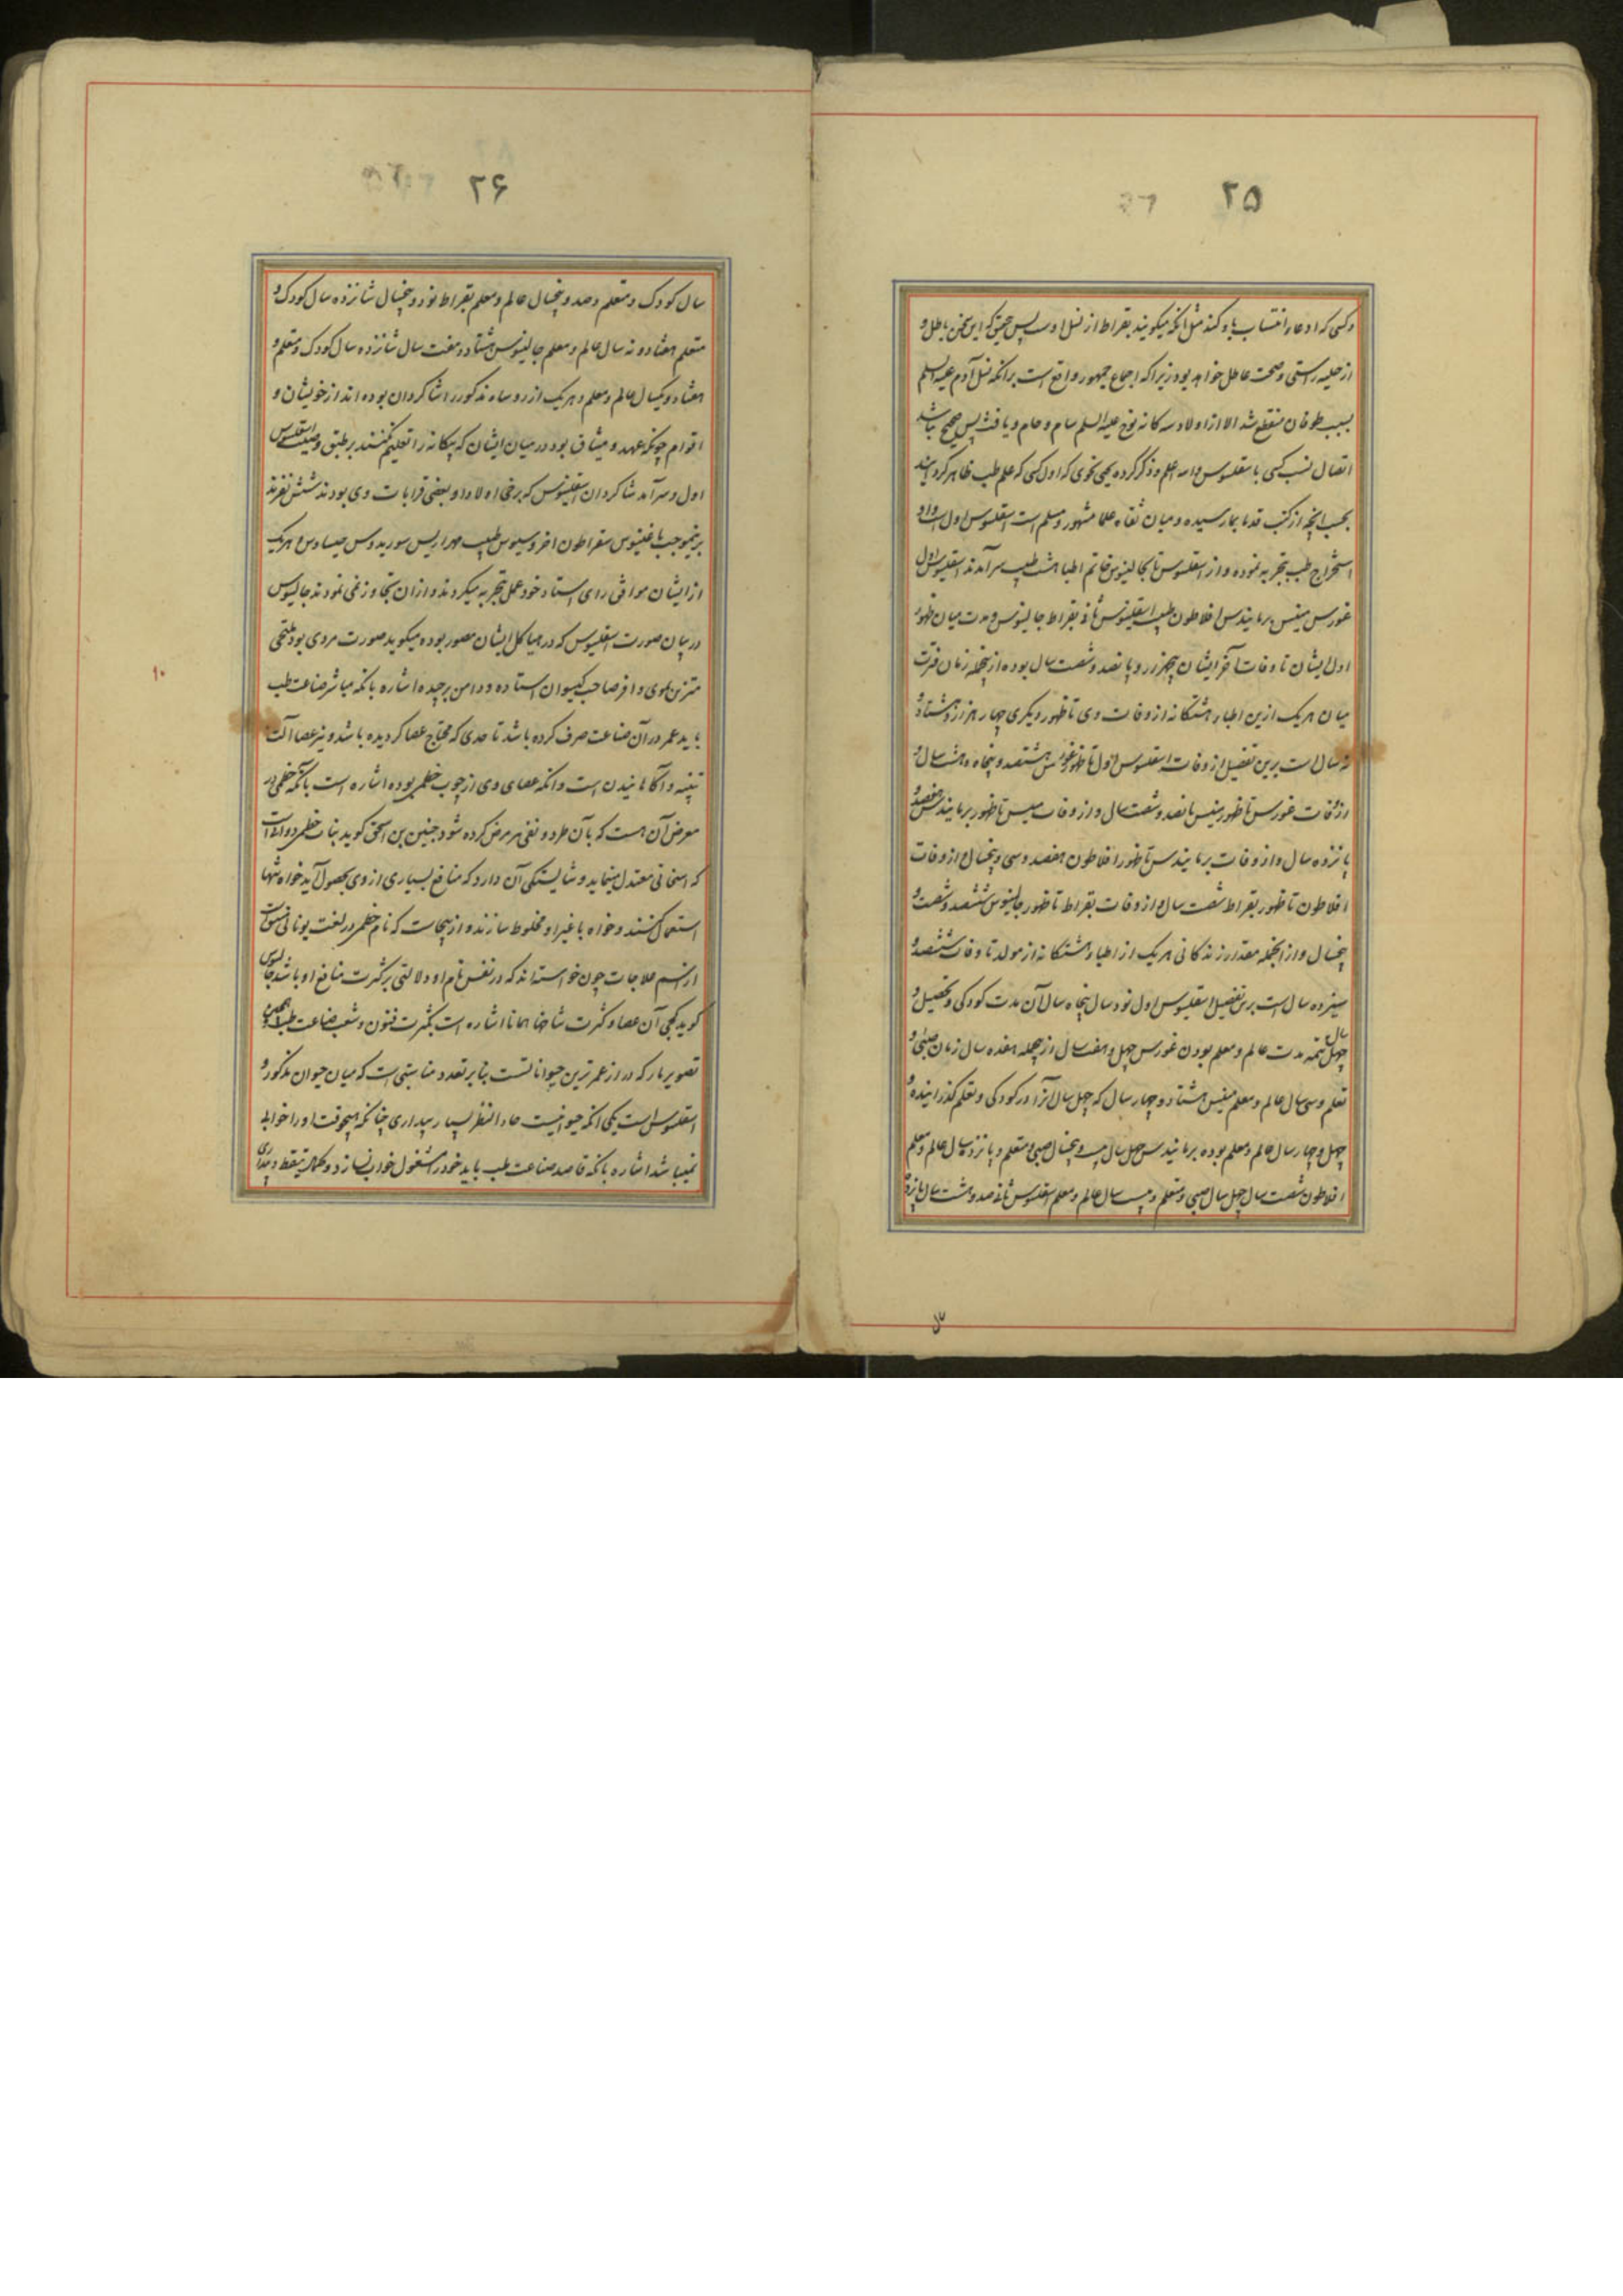 ۲۵
و کسی که ادعاء انتساب باو کند مثل آنکه میگویند بقراط از نسل اوست پس بتحقیق که این سخن باطل و
از حلیه راستی و صحت عاطل خواهد بود زیرا که اجماع جمهور واقع است برانکه نسل آدم علیه السلم
بسبب طوفان منقطع شد الا از اولاد سه کانه نوح علیه السلم سام و حام و یافث پس صحیح نباشد
اتصال نسب کسی باسقلبیوس والله اعلم و ذکر کرده یحیی نحوی که اول کسی که علم طب ظاهر کردانید
بحسب انچه از کتب قدما بما رسیده و میان ثقاه علما مشهور و مسلم است اسقلبیوس اول است و او
استخراج طب بتجربه نموده و از اسقلبیوس تا بجالینوس خاتم اطبا هشت طبیب سرآمدند اسقلبیوس اول
غورس مینس برمانیدس افلاطون طبیب اسقلبیوس ثانی بقراط جالینوس و مدت میان ظهور
اول ایشان تا وفات آخر ایشان پنجهزار و پانصد و شصت سال بوده ازینجمله زمان فترت
میان هریک ازین اطباء هشتکانه از وفات وی تا ظهور دیگری چهار هزار و هشتاد و
نه سال است برین تفصیل از وفات اسقلبیوس اول تا ظهور غورس هشتصد و پنجاه و هشت سال و
از وفات غورس تا ظهور مینس پانصد و شصت سال و از وفات مینس تا ظهور برمانیدس هفتصد و
پانزده سال و از وفات برمانیدس تا ظهور افلاطون هفصد و سی و پنجسال و از وفات
افلاطون تا ظهور بقراط شصت سال و از وفات بقراط تا ظهور جالینوس ششصد و شصت و
پنجسال و از انجمله مقدار زندکانی هریک از اطباء هشتکانه از مولد تا وفات ششصد و
سیزده سال است برین تفصیل اسقلبیوس اول نود سال پنجاه سال آن مدت کودکی و تحصیل و
چهل سال تتمه مدت عالم و معلم بودن غورس چهل و هفت سال ازجمله هفده سال زمان صبی و
تعلم و سی سال عالم و معلم مینس هشتاد و چهار سال که چهل سال آنرا در کودکی و تعلم کذرانیده و
چهل و چهار سال عالم و معلم بوده برمانیدس چهل سال بیست و پنجسال صبی و متعلم و پانزده سال عالم و معلم
افلاطون شصت سال چهل سال صبی و متعلم و بیست سال عالم و معلم اسقلبیوس ثانی صد و هشت سال پانزده
۲۶
سال کودک و متعلم و صد و پنجسال عالم و معلم بقراط نود و پنجسال شانزده سال کودک و
متعلم هفتاد و نه سال عالم و معلم جالینوس هشتاد و هفت سال شانزده سال کودک و متعلم و
هفتاد و یکسال عالم و معلم و هریک از روساء مذکور را شاکردان بوده اند از خویشان و
اقوام چونکه عهد و میثاق بود در میان ایشان که بیکانه را تعلیم نکنند بر طبق وصیت اسقلبیوس
اول و سرآمد شاکردان اسقلبیوس که برخی اولاد او بعضی قرابات وی بودند شش نفرند
برینموجب سقراطون طبیب و هریک
از ایشان موافق رای استاد خود عمل بتجربه میکردند و ازان تجاوز نمی نمودند جالینوس
در بیان صورت اسقلبیوس که در هیاکل ایشان مصور بوده میکوید صورت مردی بود ملتحی
متزین بموی وافر صاحب کیسوان استاده و دامن برچیده اشاره بانکه مباشر صناعت طب
باید عمر در آن صناعت صرف کرده باشد تا حدی که محتاج عصا کردیده باشد و نیز عصا آلت
تنبیه و آکاهانیدن است و انکه عصای وی از چوب خطمی بوده اشاره است بانکه خطمی در
معرض آن هست که بآن طرد و نفی هر مرض کرده شود حنین بن اسحق کوید نبات خطمی دوائیست
که اسخانی معتدل مینماید و شایستکی آن دارد که منافع بسیاری از وی بحصول آید خواه تنها
استعمال کنند و خواه با غیر او مخلوط سازند و از اینجاست که نام خطمی در لغت یونانی مشتق است
از اسم علاجات چون خواسته اند که در نفس نام او دلالتی بر کثرت منافع او باشد جالینوس
کوید کجی آن عصا و کثرت شاخها همانا اشاره است بکثرت فنون و شعب صناعت طب و همچنین
تصویر مار که دراز عمر ترین حیواناتست بنابر تعدد مناسبتی است که میان حیوان مذکور و
اسقلبیوس است یکی انکه حیوانیست حاد النظر بسیار بیداری چنانکه هیچوقت او را خوابی
نمیباشد اشاره بانکه قاصد صناعت طب باید خود را مشغول خواب نسازد و کمال تیقظ و بیداری
۱۰